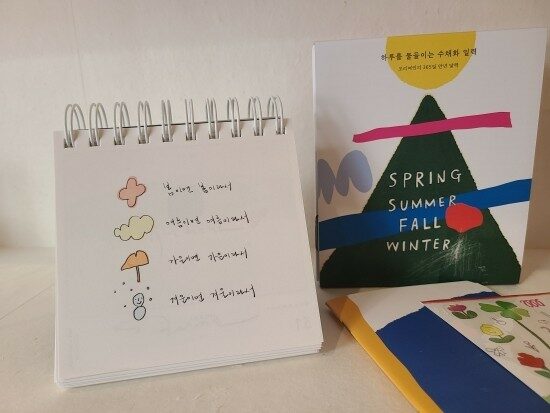 봄이면 봄이라서
여름이면 여름이라서
가을이면 가을이라서
겨울이면 겨울이라서
하루를 물들이는 수채화 일력
SPRING
SUMMER
FALL
WINTER